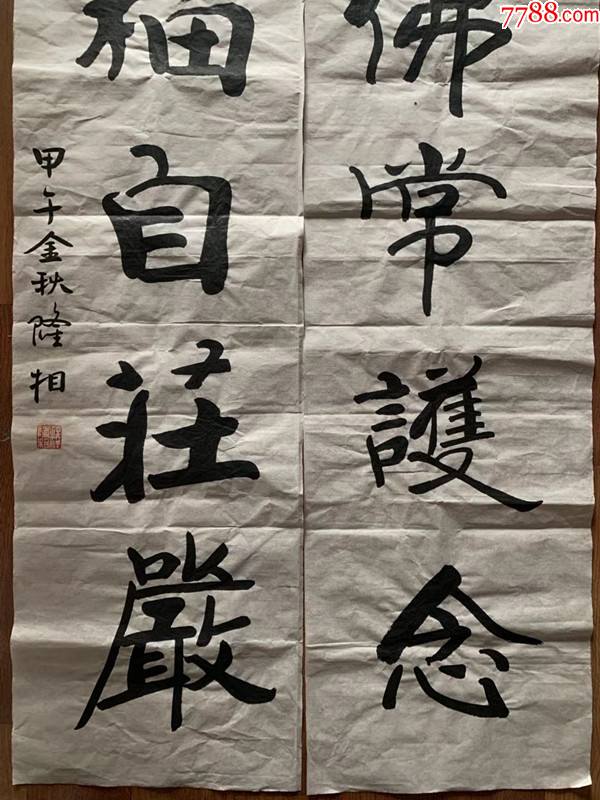 7788.com
佛常護念
福自莊嚴
甲午金秋隆相